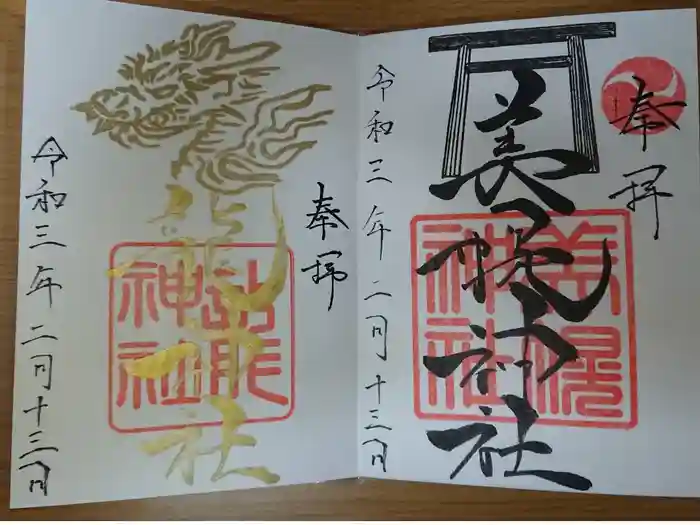 奉拝
美幌神社
美幌神社
令和三年二月十三日
奉拝
龍神社
龍神社
令和三年二月十三日